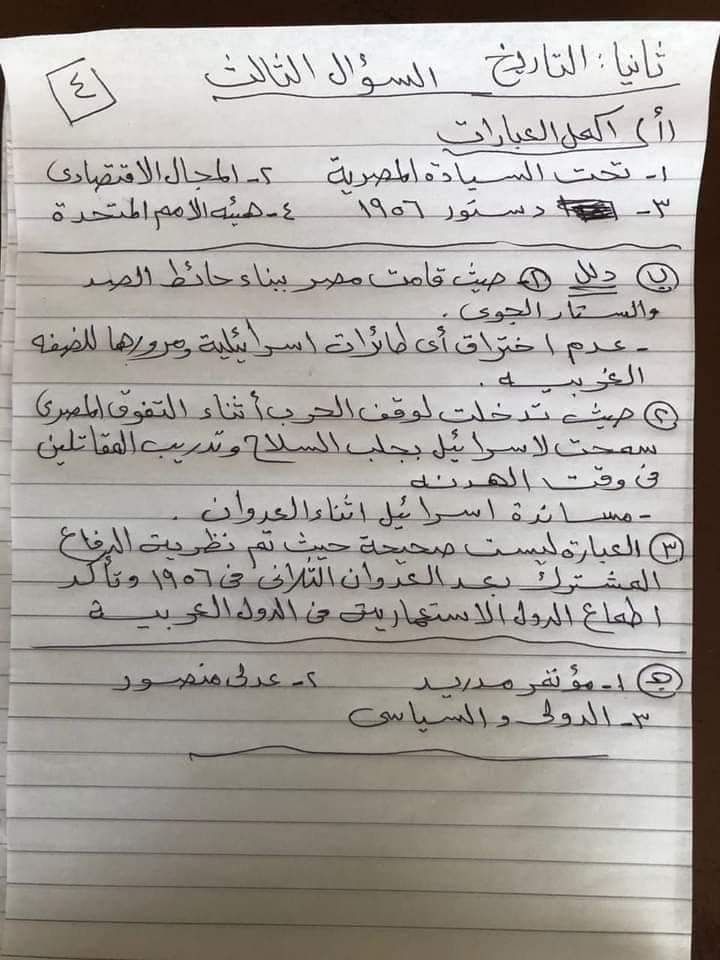 ثانيا: التاريخ
السؤال الثالث
٤
(أ) اكمل العبارات
١- تحت السيادة المصرية ٢- المجال الاقتصادى
٣- دستور ١٩٥٦ ٤- هيئه الامم المتحدة
ب دلل ١ حيث قامت مصر ببناء حائط الصد
والستار الجوى .
- عدم اختراق أى طائرات اسرائيلية ومرورها للضفه
الغربيه .
٢ حيث تدخلت لوقف الحرب أثناء التفوق المصرى
سمحت لاسرائيل بجلب السلاح وتدريب المقاتلين
فى وقت الهدنه
- مساندة اسرائيل اثناء العدوان .
٣ العبارة ليست صحيحة حيث تم نظرية الدفاع
المشترك بعد العدوان الثلاثى فى ١٩٥٦ وتأكد
اطماع الدول الاستعمارية فى الدول العربية
١- مؤتمر مدريد ٢- عدلى منصور
٣- الدولى والسياسى